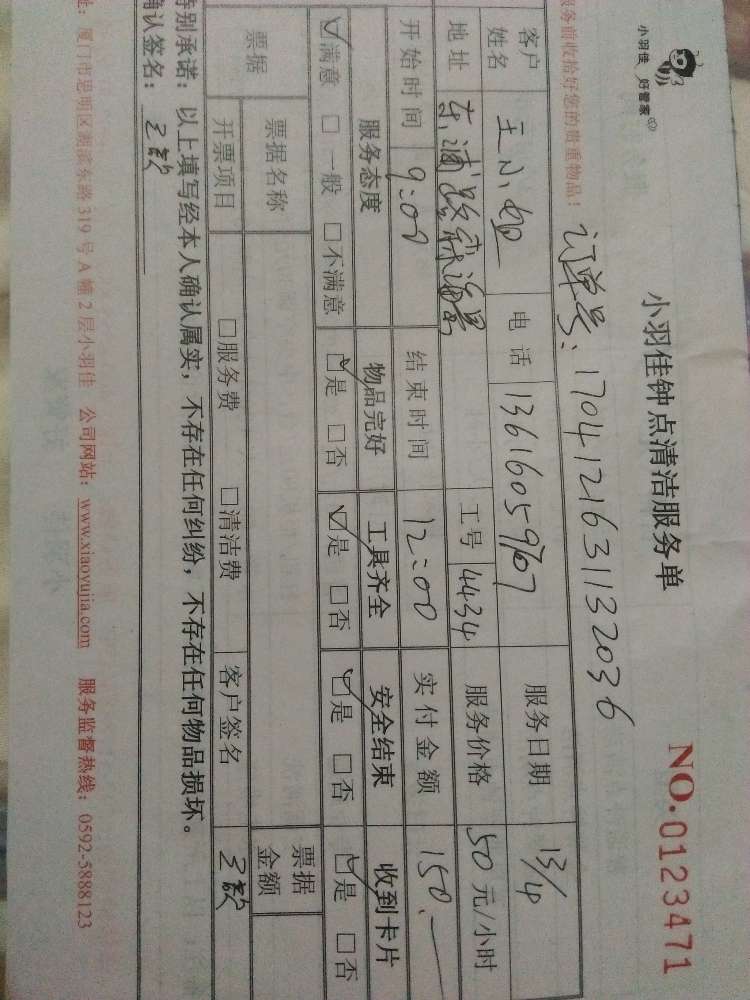 小羽佳 好管家
小羽佳钟点清洁服务单
NO.0123471
服务前收拾好您的贵重物品!
订单号:1704121631132036
客户姓名 王小姐 电话 13616059707 服务日期 13/4
地址 东浦路森海景 工号 4434 服务价格 50元/小时
开始时间 9:00 结束时间 12:00 实付金额 150.—
服务态度 物品完好 工具齐全 安全结束 收到卡片
☑满意 □一般 □不满意 ☑是 □否 ☑是 □否 ☑是 □否 ☑是 □否
票据 票据名称 票据金额
开票项目 □服务费 □清洁费 客户签名 王敏
特别承诺:以上填写经本人确认属实,不存在任何纠纷,不存在任何物品损坏。
确认签名:王敏
址:厦门市思明区湖滨东路319号A幢2层小羽佳 公司网站:www.xiaoyujia.com 服务监督热线:0592-5888123